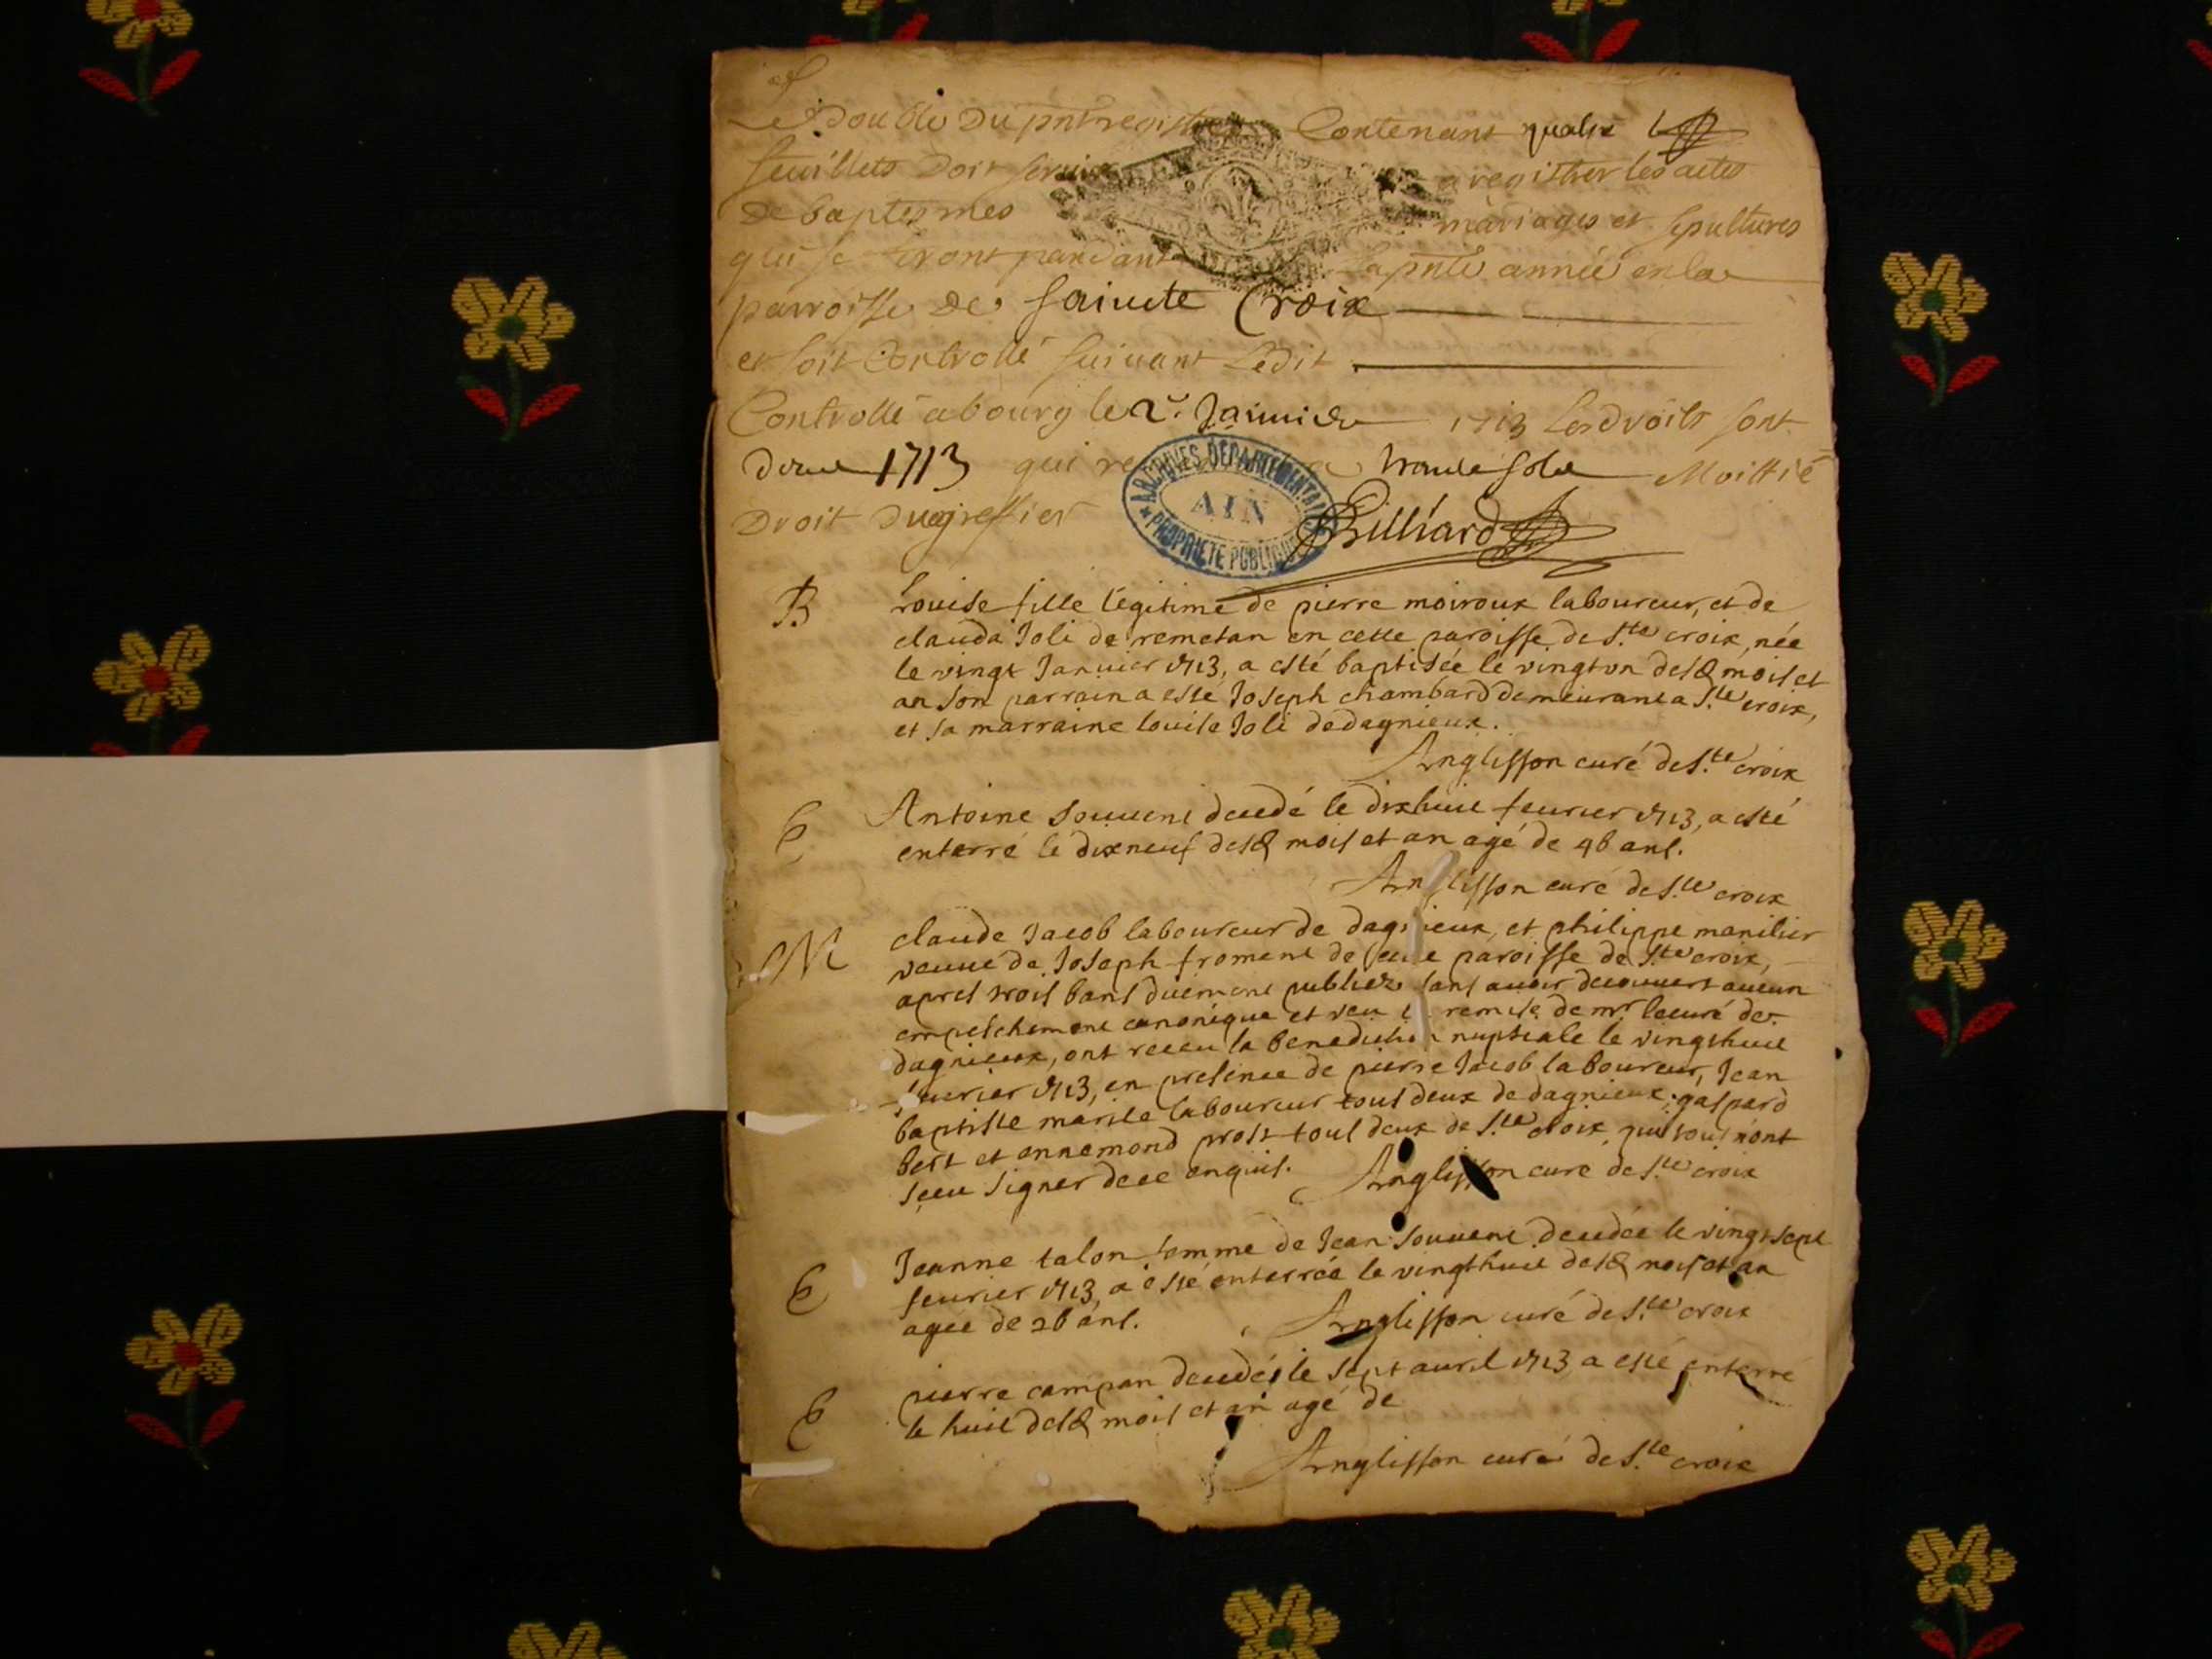 Le double du pnt registre Contenant quatre
feuillets Doit servir a registrer les actes
De baptesmes mariages et sepultures
qui se feront pendant la pnte année en la
parroisse de saincte Croix
et soit Controllé suivant Ledit
Controllé a bourg le 2e. Januier 1713 Les droits sont
1713 qui trante sols Moittié
Droit du greffier Billiard
ARCHIVES DEPARTEMENTALES
AIN
PROPRIETE PUBLIQUE
B Louise fille légitime de pierre moiroux laboureur, et de
clauda Joli de remetan en cette paroisse de Ste croix, née
le vingt Januier 1713, a esté baptisée le vingt un desd mois et
an son parrain a esté Joseph chambard demeurant a Ste croix,
et sa marraine louise Joli de dagnieux.
Anglisson curé de Ste croix
E Antoine souuent decedé le dixhuit feurier 1713, a esté
enterré le dixneuf desd mois et an agé de 46 ans.
Anglisson curé de Ste croix
M claude Jacob laboureur de dagnieux, et philippe manilier
veuue de Joseph froment de cette paroisse de Ste croix,
apres trois bans duëment publiez sans auoir decouuert aucun
empeschement canonique et veu la remise de mr. le curé de
dagnieux, ont receu la benediction nuptiale le vingthuit
feurier 1713, en presence de pierre Jacob laboureur, Jean
baptiste marile laboureur tous deux de dagnieux, gaspard
bert et annemond prost tous deux de Ste croix, qui tous n'ont
sçeu signer de ce enquis. Anglisson curé de Ste croix
E Jeanne talon femme de Jean souuent decedée le vingt sept
feurier 1713, a esté enterrée le vingthuit desd mois et an
agée de 26 ans. Anglisson curé de Ste croix
E pierre campan decedé le sept auril 1713 a esté enterré
le huit desd mois et an agé de
Anglisson curé de Ste croix